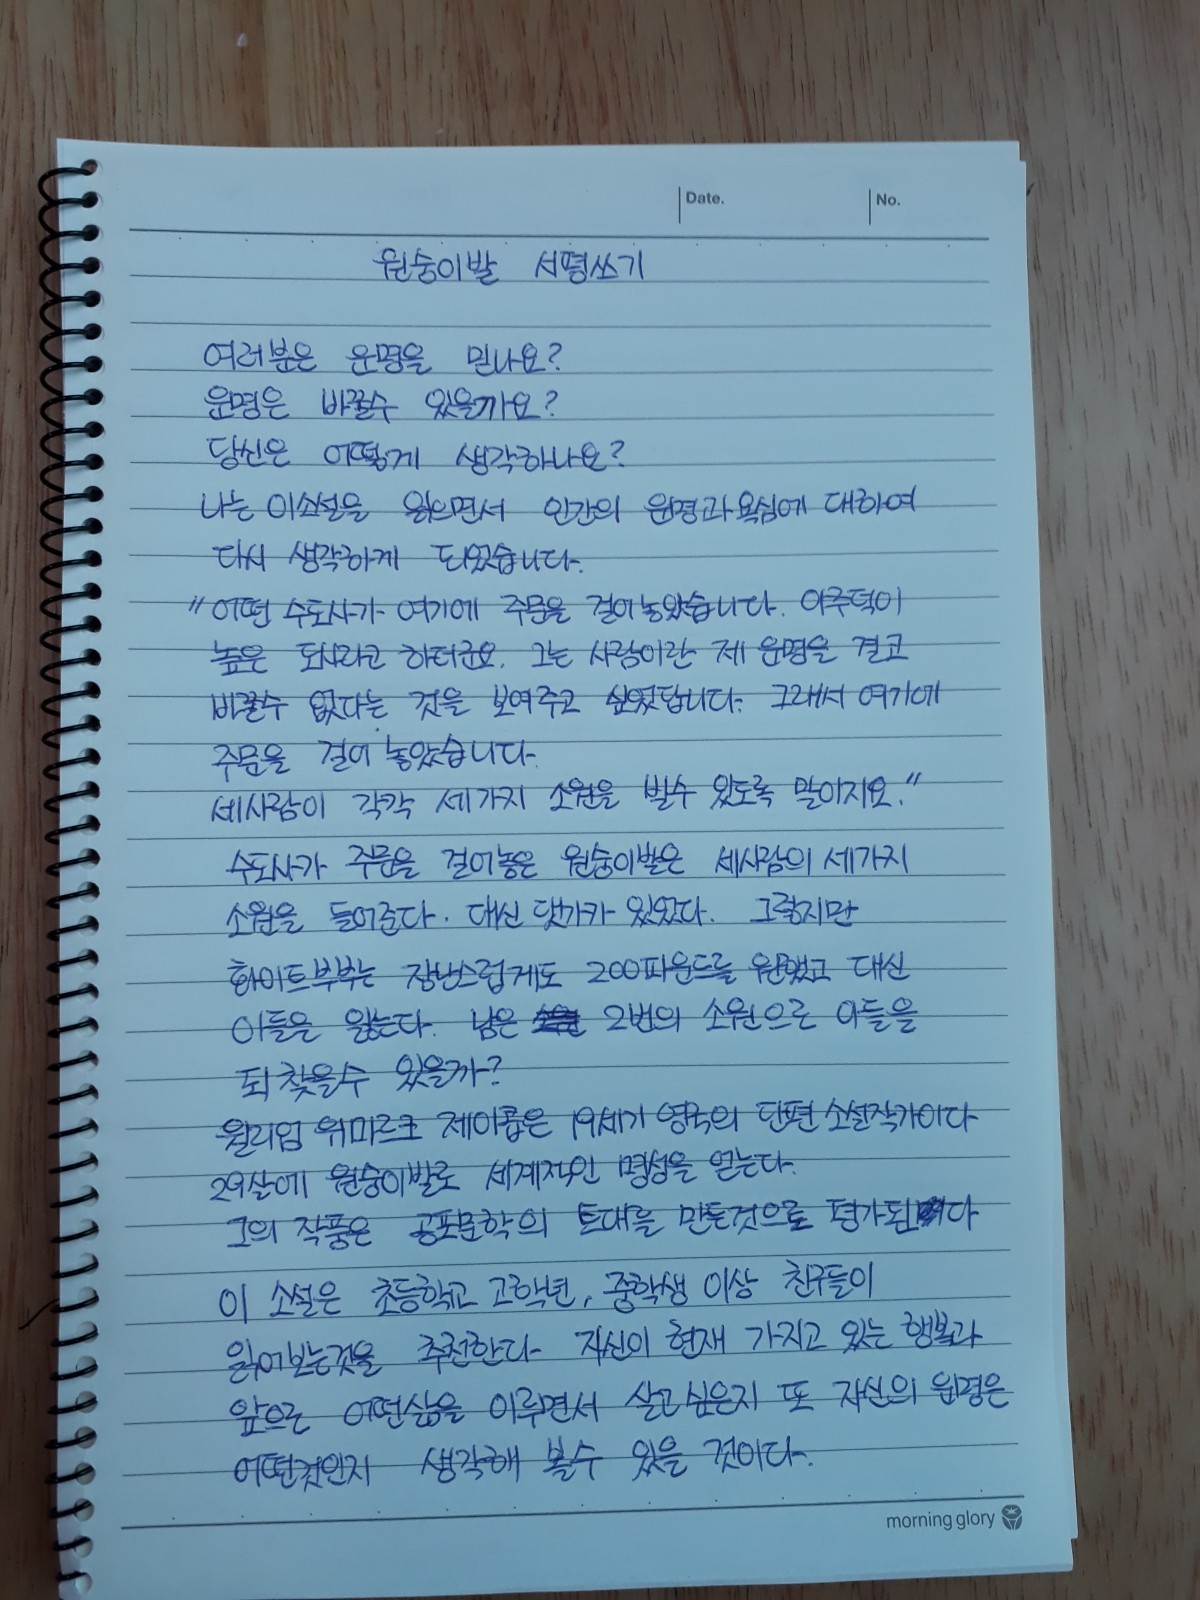 Date.
No.
원숭이발 서평쓰기
여러분은 운명을 믿나요?
운명은 바꿀수 있을까요?
당신은 어떻게 생각하나요?
나는 이소설을 읽으면서 인간의 운명과 욕심에 대하여
다시 생각하게 되었습니다.
"어떤 수도사가 여기에 주문을 걸어놓았습니다. 아주덕이
높은 도사라고 하더군요. 그는 사람이란 제 운명을 결고
바꿀수 없다는 것을 보여주고 싶었답니다. 그래서 여기에
주문을 걸어 놓았습니다.
세사람이 각각 세가지 소원을 빌수 있도록 말이지요."
수도사가 주문을 걸어놓은 원숭이발은 세사람의 세가지
소원을 들어준다. 대신 댓가가 있었다. 그렇지만
화이트부부는 장난스럽게도 200파운드를 원했고 대신
아들은 잃는다. 남은 2번의 소원으로 아들을
되찾을수 있을까?
윌리엄 위마르크 제이콥은 19세기 영국의 단편 소설작가이다
29살에 원숭이발로 세계적인 명성을 얻는다.
그의 작품은 공포문학의 토대를 만든것으로 평가된다
이 소설은 초등학교 고학년, 중학생 이상 친구들이
읽어보는것을 추천한다. 자신이 현재 가지고 있는 행복과
앞으로 어떤삶을 이루면서 살고싶은지 또 자신의 운명은
어떤것인지 생각해 볼수 있을 것이다.
morning glory